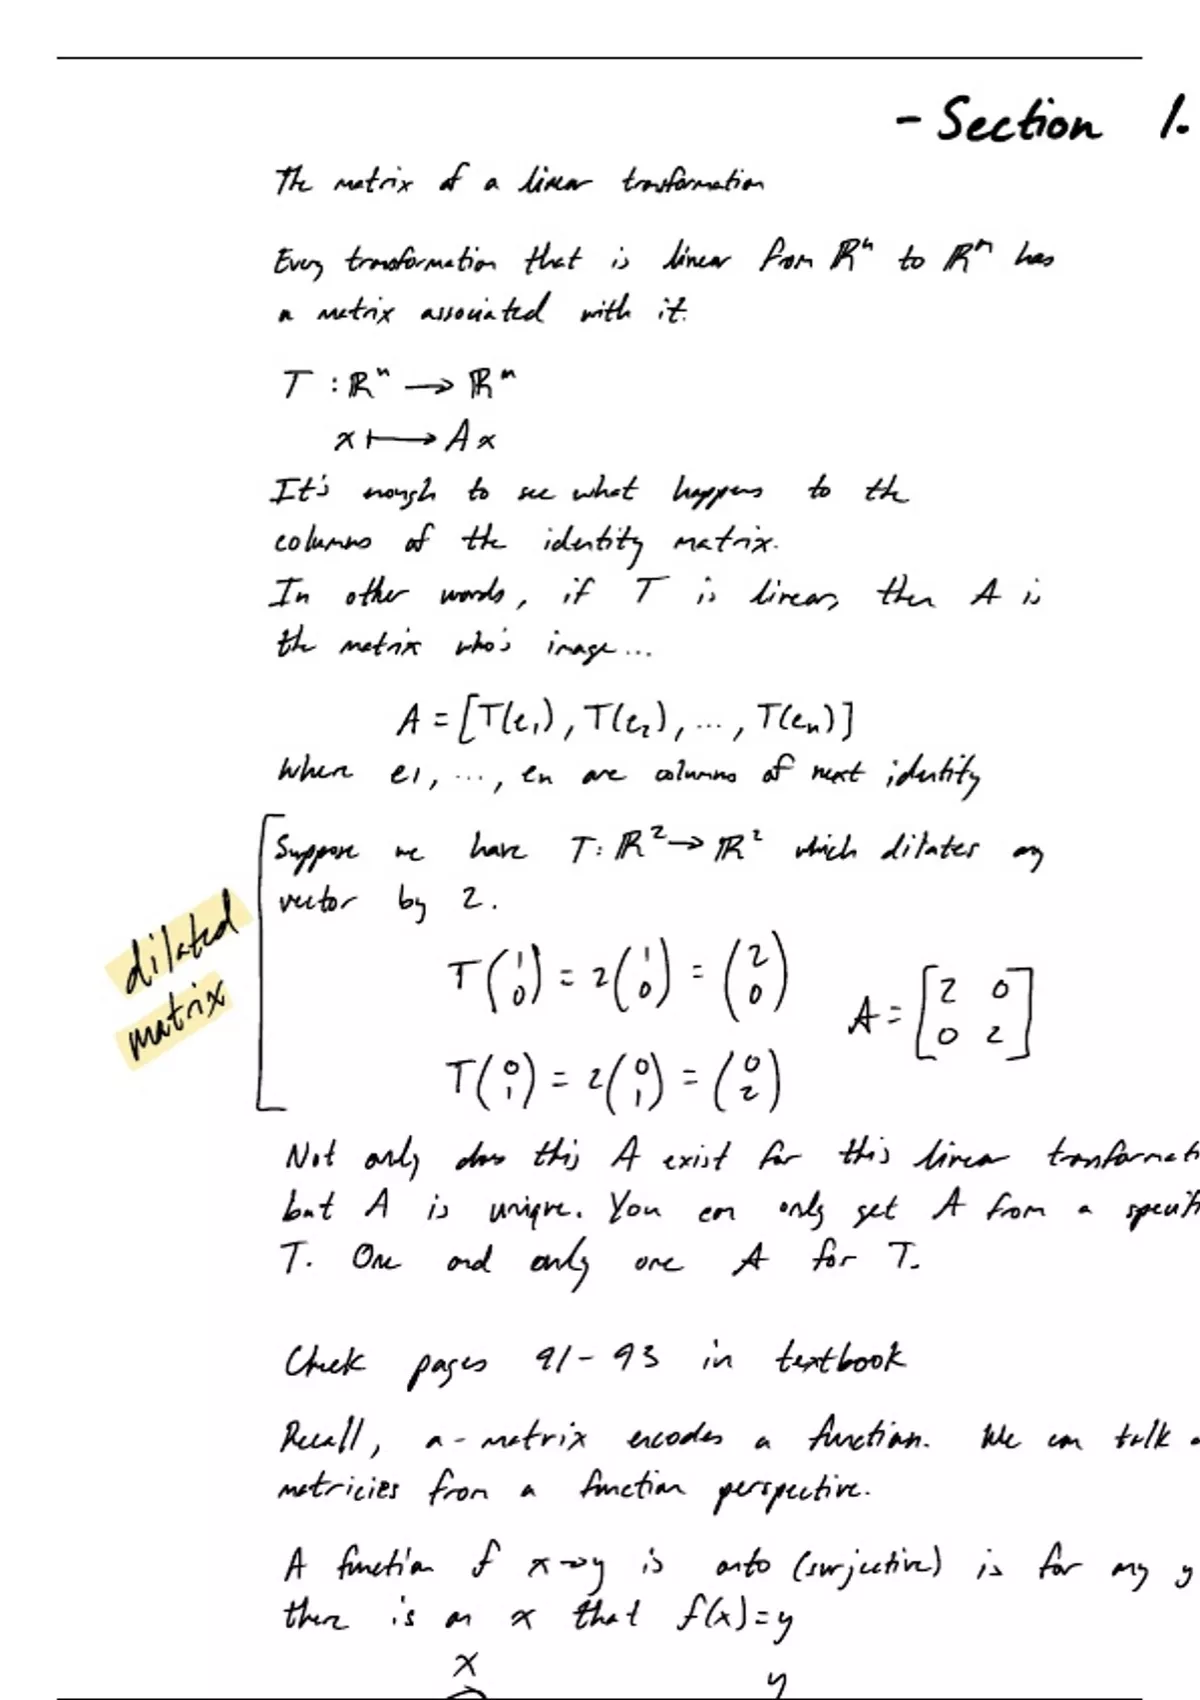 - Section 1.
The matrix of a linear transformation
Every transformation that is linear from ℝⁿ to ℝᵐ has
a matrix associated with it.
T : ℝⁿ → ℝᵐ
x ↦ Ax
It's enough to see what happens to the
columns of the identity matrix.
In other words, if T is linear, then A is
the matrix who's image...
A = [T(e₁), T(e₂), ..., T(eₙ)]
Where e1, ..., en are columns of identity
Suppose we have T: ℝ² → ℝ² which dilates any
vector by 2.
dilated
matrix
T(1 0) = 2(1 0) = (2 0)
A = [2 0
0 2]
T(0 1) = 2(0 1) = (0 2)
Not only does this A exist for this linear transformati
but A is unique. You can only get A from a specifi
T. One and only one A for T.
Check pages 91-93 in textbook
Recall, a - matrix encodes a function. We can talk a
matricies from a function perspective.
A function f x→y is onto (surjective) is for any y
there is an x that f(x)=y
x
y